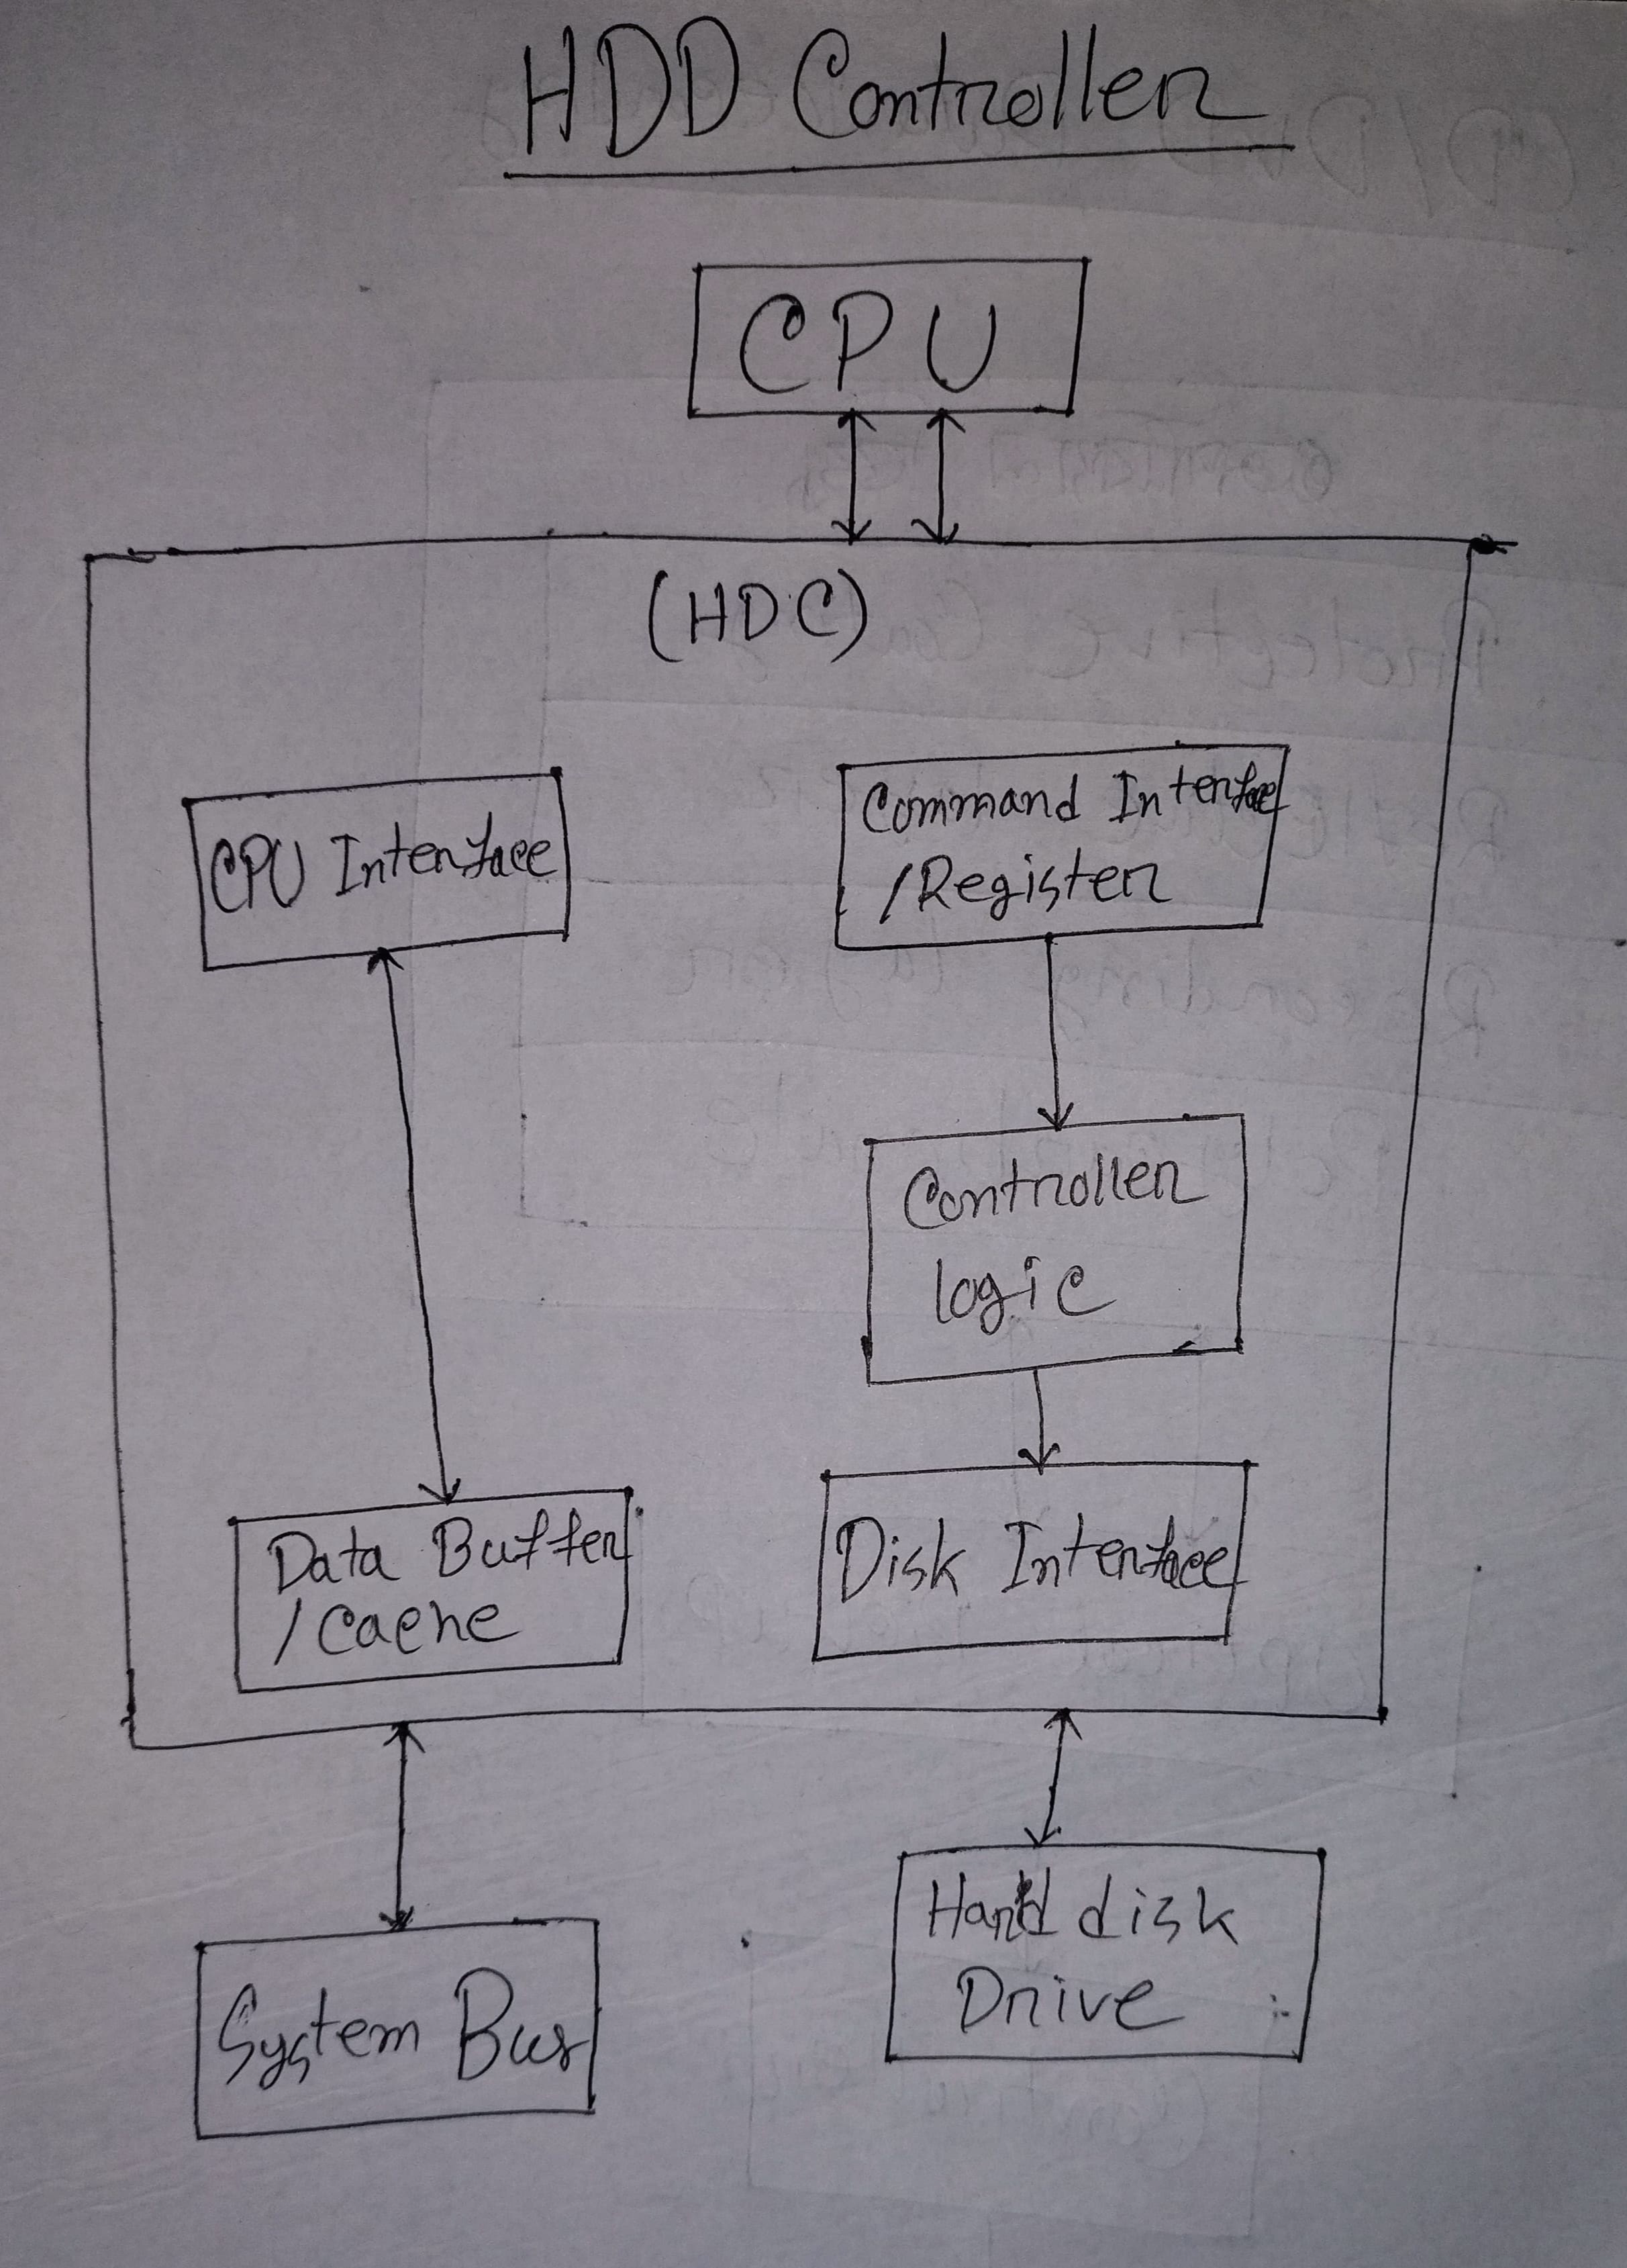 HDD Controller
CPU
(HDC)
CPU Interface
Command Interface
/Register
Controller
logic
Data Buffer
/Cache
Disk Interface
System Bus
Hard disk
Drive